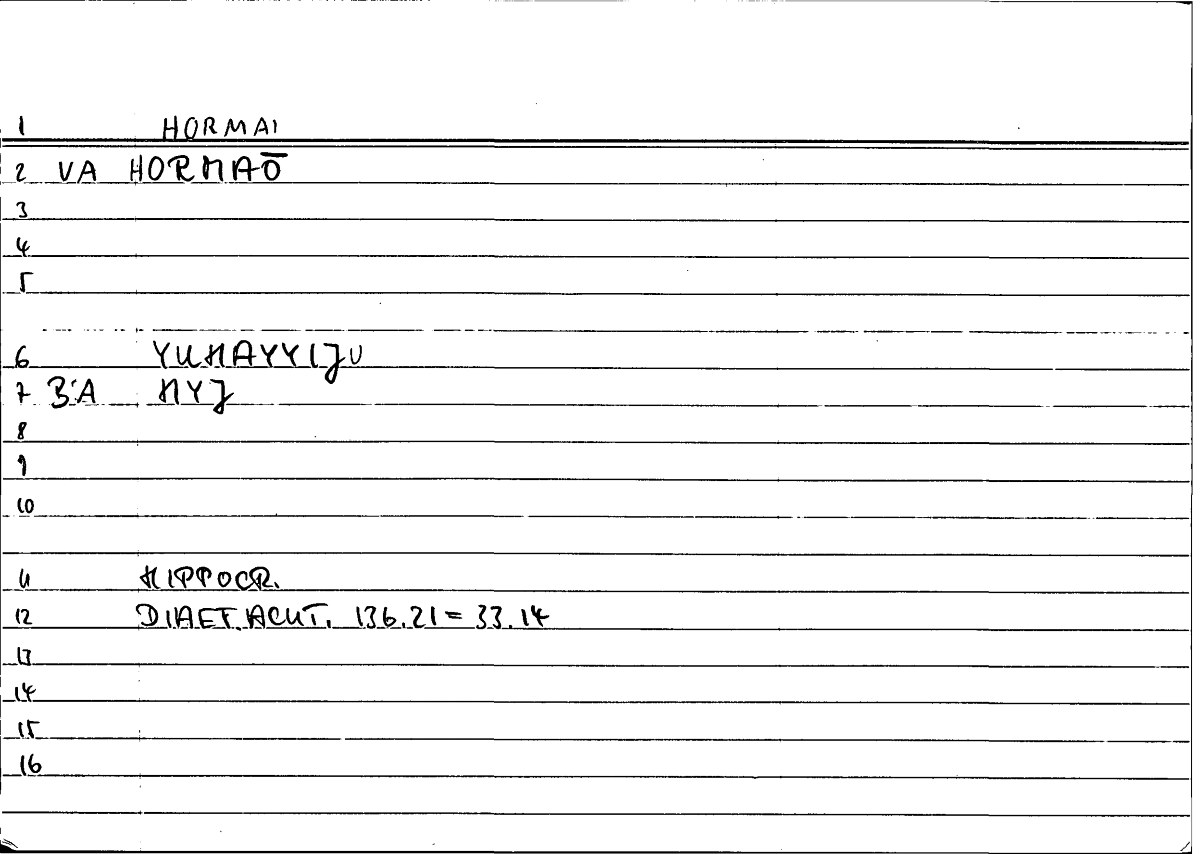 1 HORMAI
2 VA HORMAŌ
3
4
5
6 YUHAYYIJU
7 B'A HYJ
8
9
10
11 HIPPOCR.
12 DIAET.ACUT. 136.21 = 33.14
13
14
15
16